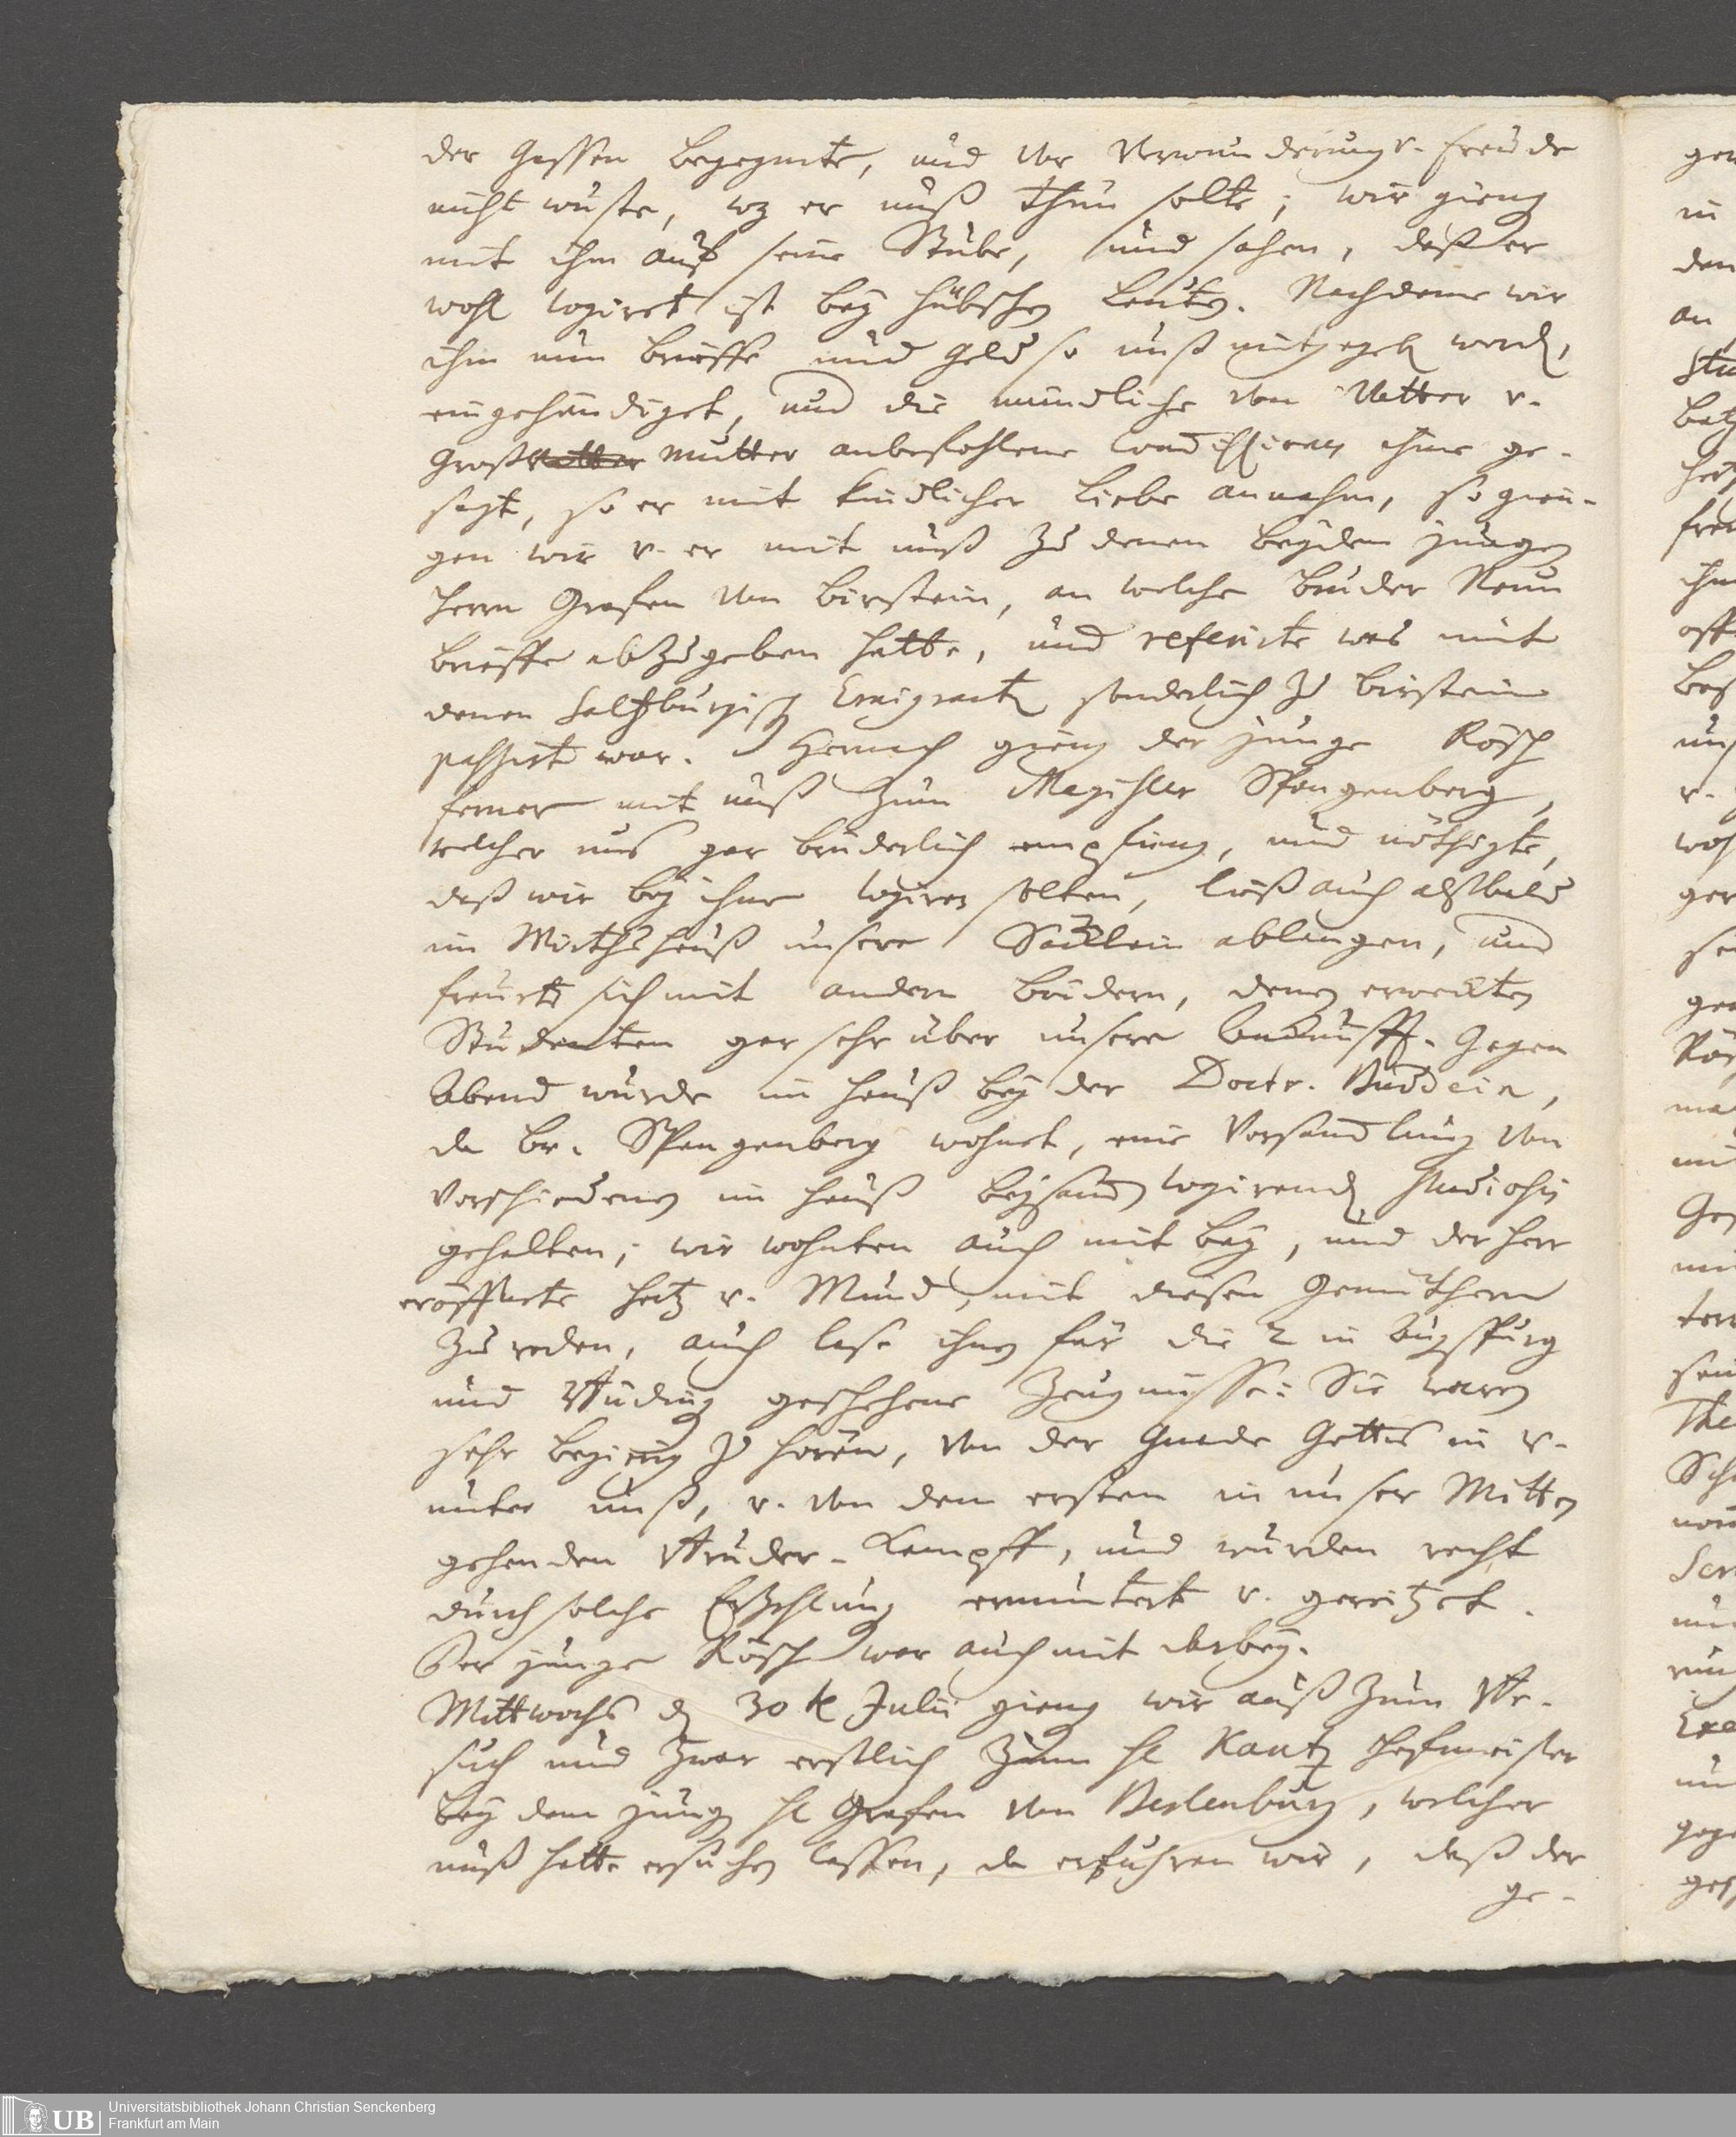 der Gassen begegnete, und vor Verwunderung u. freude
nicht wuste, wz er unß thun solte; wir gieng
mit ihm auf seine Stube, und sahen, daß er
wohl logiret ist bey hübschen Leuten. Nachdeme wir
ihm nun brieffe und Geld so unß mitgegeb. word.
eingehändiget, und die mündliche von Vatter u.
Großvatter mutter anbefohlene ihme ge-
sagt, so er mit kindlicher Liebe annahm, so gien-
gen wir u. er mit unß zu denen beyden jungen
Herrn Grafen von Birstein, an welche bruder Neun
brieffe abzugeben hatte, und referirte was mit
denen Saltzburgisch Emigrant. sonderlich zu birstein
passirt war. Hernach gieng der junge Rösch
ferner mit unß zum Magister Spangenberg,
welcher uns gar brüderlich empfieng, und nöthigte,
daß wir bey ihme logiren solten, ließ auch alßbald
im Wirthshauß unsere Säcklein ablangen, und
freuete sich mit andern brüdern, denen erweckten
Studenten gar sehr über unsere Ankunfft. Gegen
Abend wurde im hauß bey der Doctr. Buddein,
da br. Spangenberg wohnet, eine Versamlung von
verschiedenen im hauß beysamen logirend. studiosis
gehalten; wir wohnten auch mit bey, und der Herr
eröffnete Hertz u. Mund, mit diesen Gemüthern
zu reden, auch lase ihnen für die 2 in
und Büding geschehene Zeugnisse: Sie waren
sehr begierig zu hören, von der Gnade Gottes in u.
unter unß, u. von dem ersten in unser Mitten
gehenden Bruder-Kampff, und wurden recht
durch solche Erzehlung ermuntert u. gereitzet.
Der junge Rösch war auch mit darbey.
Mittwochs d. 30 t. Julii gieng wir auß zum Be-
such und zwar erstlich zum H. Kautz Hofmeister
bey dem jung. H. Grafen von Berlenburg, welcher
unß hatte ersuchen lassen, da erfuhren wir, daß der
ge-
Universitätsbibliothek Johann Christian Senckenberg
Frankfurt am Main
UB